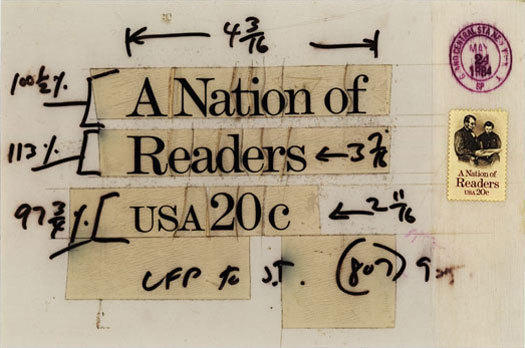 4 3/16
100 1/2 %
A Nation of
113 %
Readers
97 3/4 %
USA 20c
2 11/16
LFP to J.T.
(807)
GRAND CENTRAL STA
MAY
24
1984
A Nation of
Readers
USA 20c